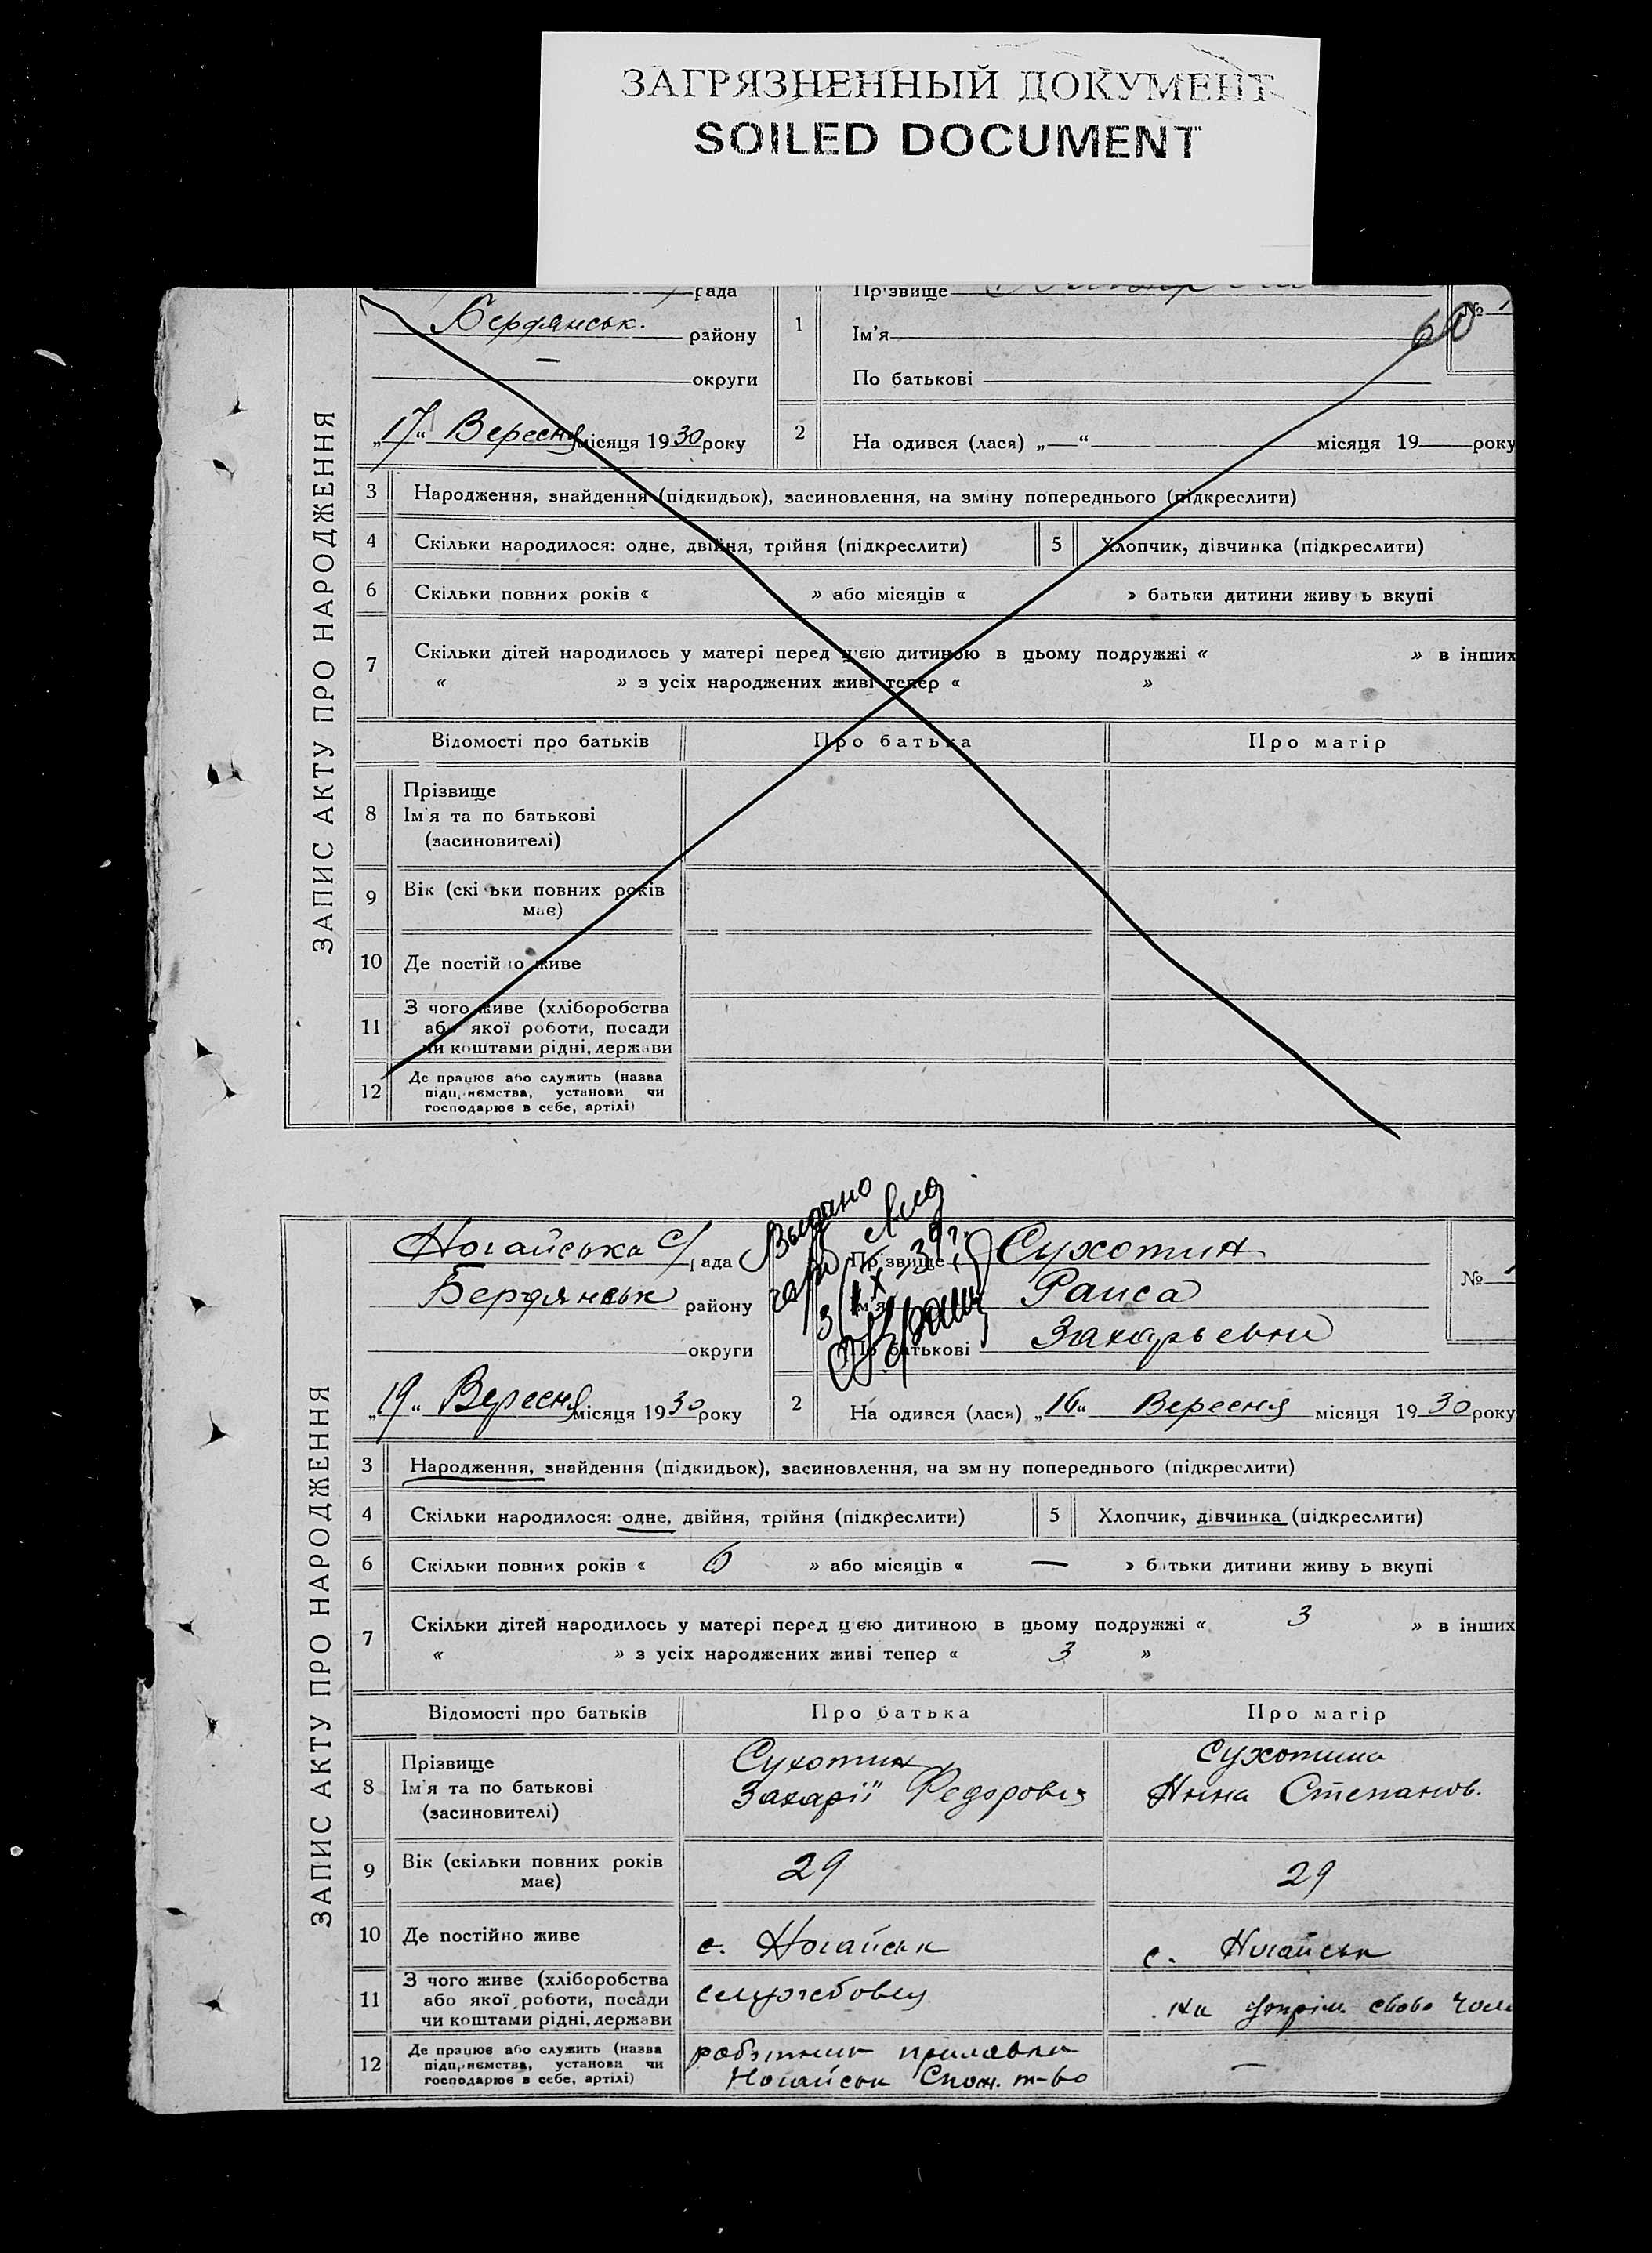 ЗАГРЯЗНЕННЫЙ ДОКУМЕНТ
SOILED DOCUMENT
ЗАПИС АКТУ ПРО НАРОДЖЕННЯ
рада
Бердянськ. району
— округи
„17“ Вересня місяця 1930 року
1
Прізвище
Ім'я
По батькові
№
60
2 На одився (лася) „—“ місяця 19 року
3 Народження, знайдення (підкидьок), засиновлення, на зміну попереднього (підкреслити)
4 Скільки народилося: одне, двійня, трійня (підкреслити) 5 Хлопчик, дівчинка (підкреслити)
6 Скільки повних років « » або місяців « » батьки дитини живу ь вкупі
7 Скільки дітей народилось у матері перед цією дитиною в цьому подружжі « » в інших
« » з усіх народжених живі тепер « »
Відомості про батьків Про батька Про матір
8 Прізвище
Ім'я та по батькові
(засиновителі)
9 Вік (скі ьки повних років
має)
10 Де постій о живе
11 З чого живе (хліборобства
або якої роботи, посади
чи коштами рідні, держави
12 Де працює або служить (назва
підприємства, установи чи
господарює в себе, артілі)
ЗАПИС АКТУ ПРО НАРОДЖЕННЯ
Ногайська с/рада
Бердянськ району
округи
„19“ Вересня місяця 1930 року
Выдано
Прізвище Сухотин
Ім'я Раиса
По батькові Захарьевни
№
2 На одився (лася) „16“ Вересня місяця 1930 року
3 Народження, знайдення (підкидьок), засиновлення, на зм ну попереднього (підкреслити)
4 Скільки народилося: одне, двійня, трійня (підкреслити) 5 Хлопчик, дівчинка (підкреслити)
6 Скільки повних років « 6 » або місяців « — » б тьки дитини живу ь вкупі
7 Скільки дітей народилось у матері перед цією дитиною в цьому подружжі « 3 » в інших
« » з усіх народжених живі тепер « 3 »
Відомості про батьків Про батька Про матір
8 Прізвище
Ім'я та по батькові
(засиновителі)
Сухотин
Захарії Федорович
Сухотина
Нина Степанов.
9 Вік (скільки повних років
має)
29
29
10 Де постійно живе с. Ногайськ с. Ногайськ
11 З чого живе (хліборобства
або якої роботи, посади
чи коштами рідні, держави
службовец
на утрім. свого чол
12 Де працює або служить (назва
підприємства, установи чи
господарює в себе, артілі)
робітник прилавка
Ногайськ Спож. т-во
—